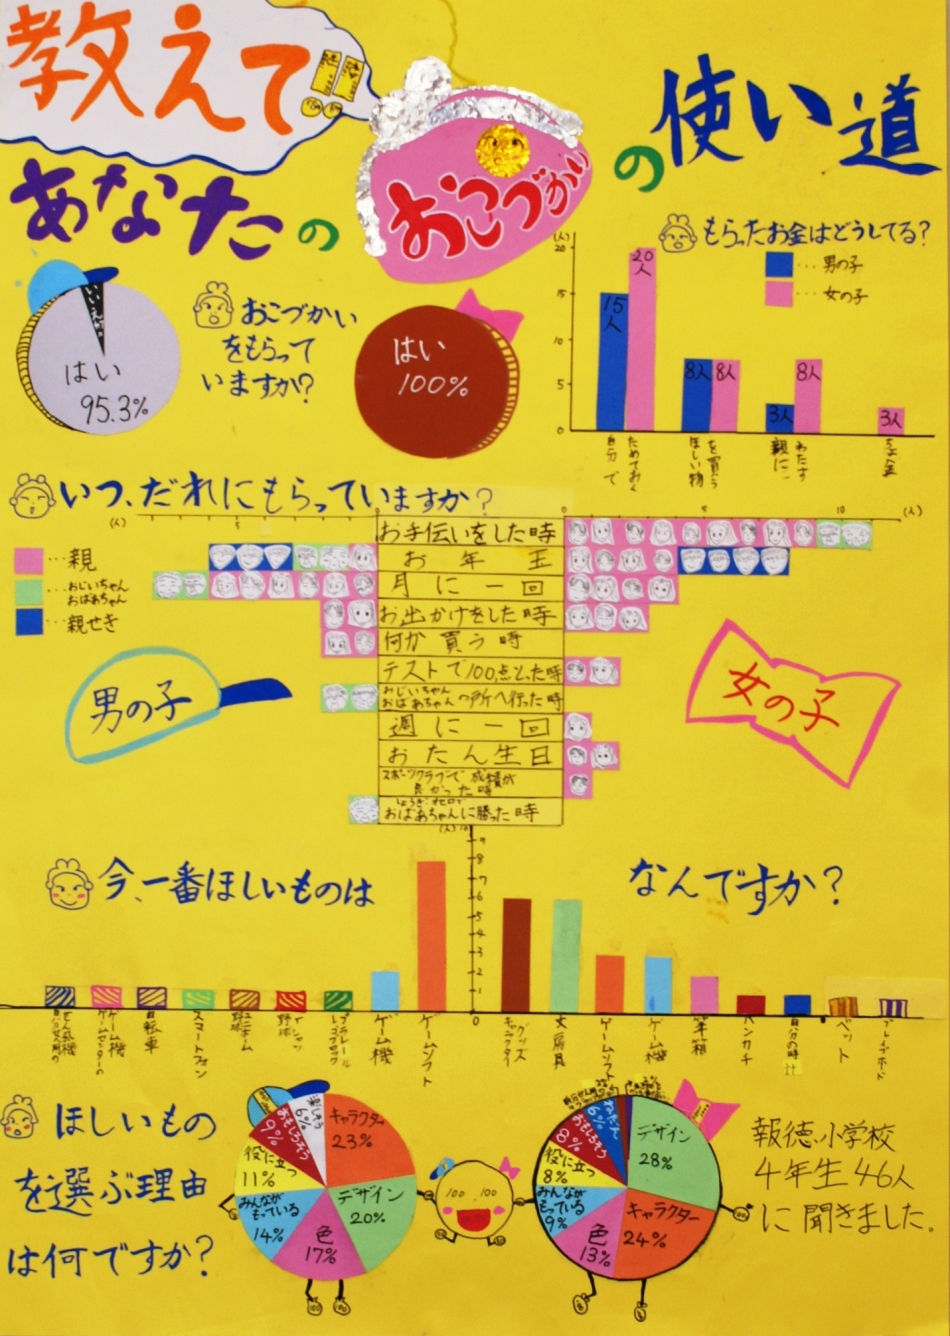 教えて
あなたの
おこづかい
の使い道
おこづかい
をもらって
いますか?
いいえ
はい
95.3%
はい
100%
もらったお金はどうしてる?
…男の子
…女の子
(人)
20
15
10
5
0
15人
20人
8人
8人
3人
8人
3人
自分でためておく
ほしい物を買う
親にわたす
ちょ金
いつ、だれにもらっていますか?
…親
…おじいちゃん
おばあちゃん
…親せき
(人)
5
0
0
5
10
(人)
お手伝いをした時
お年玉
月に一回
お出かけをした時
何か買う時
テストで100点とった時
おじいちゃん
おばあちゃんの所へ行った時
週に一回
おたん生日
スポーツクラブで成績が
良かった時
おばあちゃんに勝った時
男の子
女の子
今、一番ほしいものは
なんですか?
(人)
9
8
7
6
5
4
3
2
1
0
ゲーム機
自転車
スマートフォン
野球ユニホーム
ゲーム機
ゲームソフト
キャラクターグッズ
文房具
ゲームソフト
ゲーム機
筆箱
ハンカチ
自分の時計
ペット
ほしいもの
を選ぶ理由
は何ですか?
キャラクター
23%
デザイン
20%
色
17%
みんなが
もっている
14%
役に立つ
11%
おもしろそう
9%
楽しそう
6%
100 100
デザイン
28%
キャラクター
24%
色
13%
みんなが
もっている
9%
役に立つ
8%
おもしろそう
8%
6%
報徳小学校
4年生46人
に聞きました。